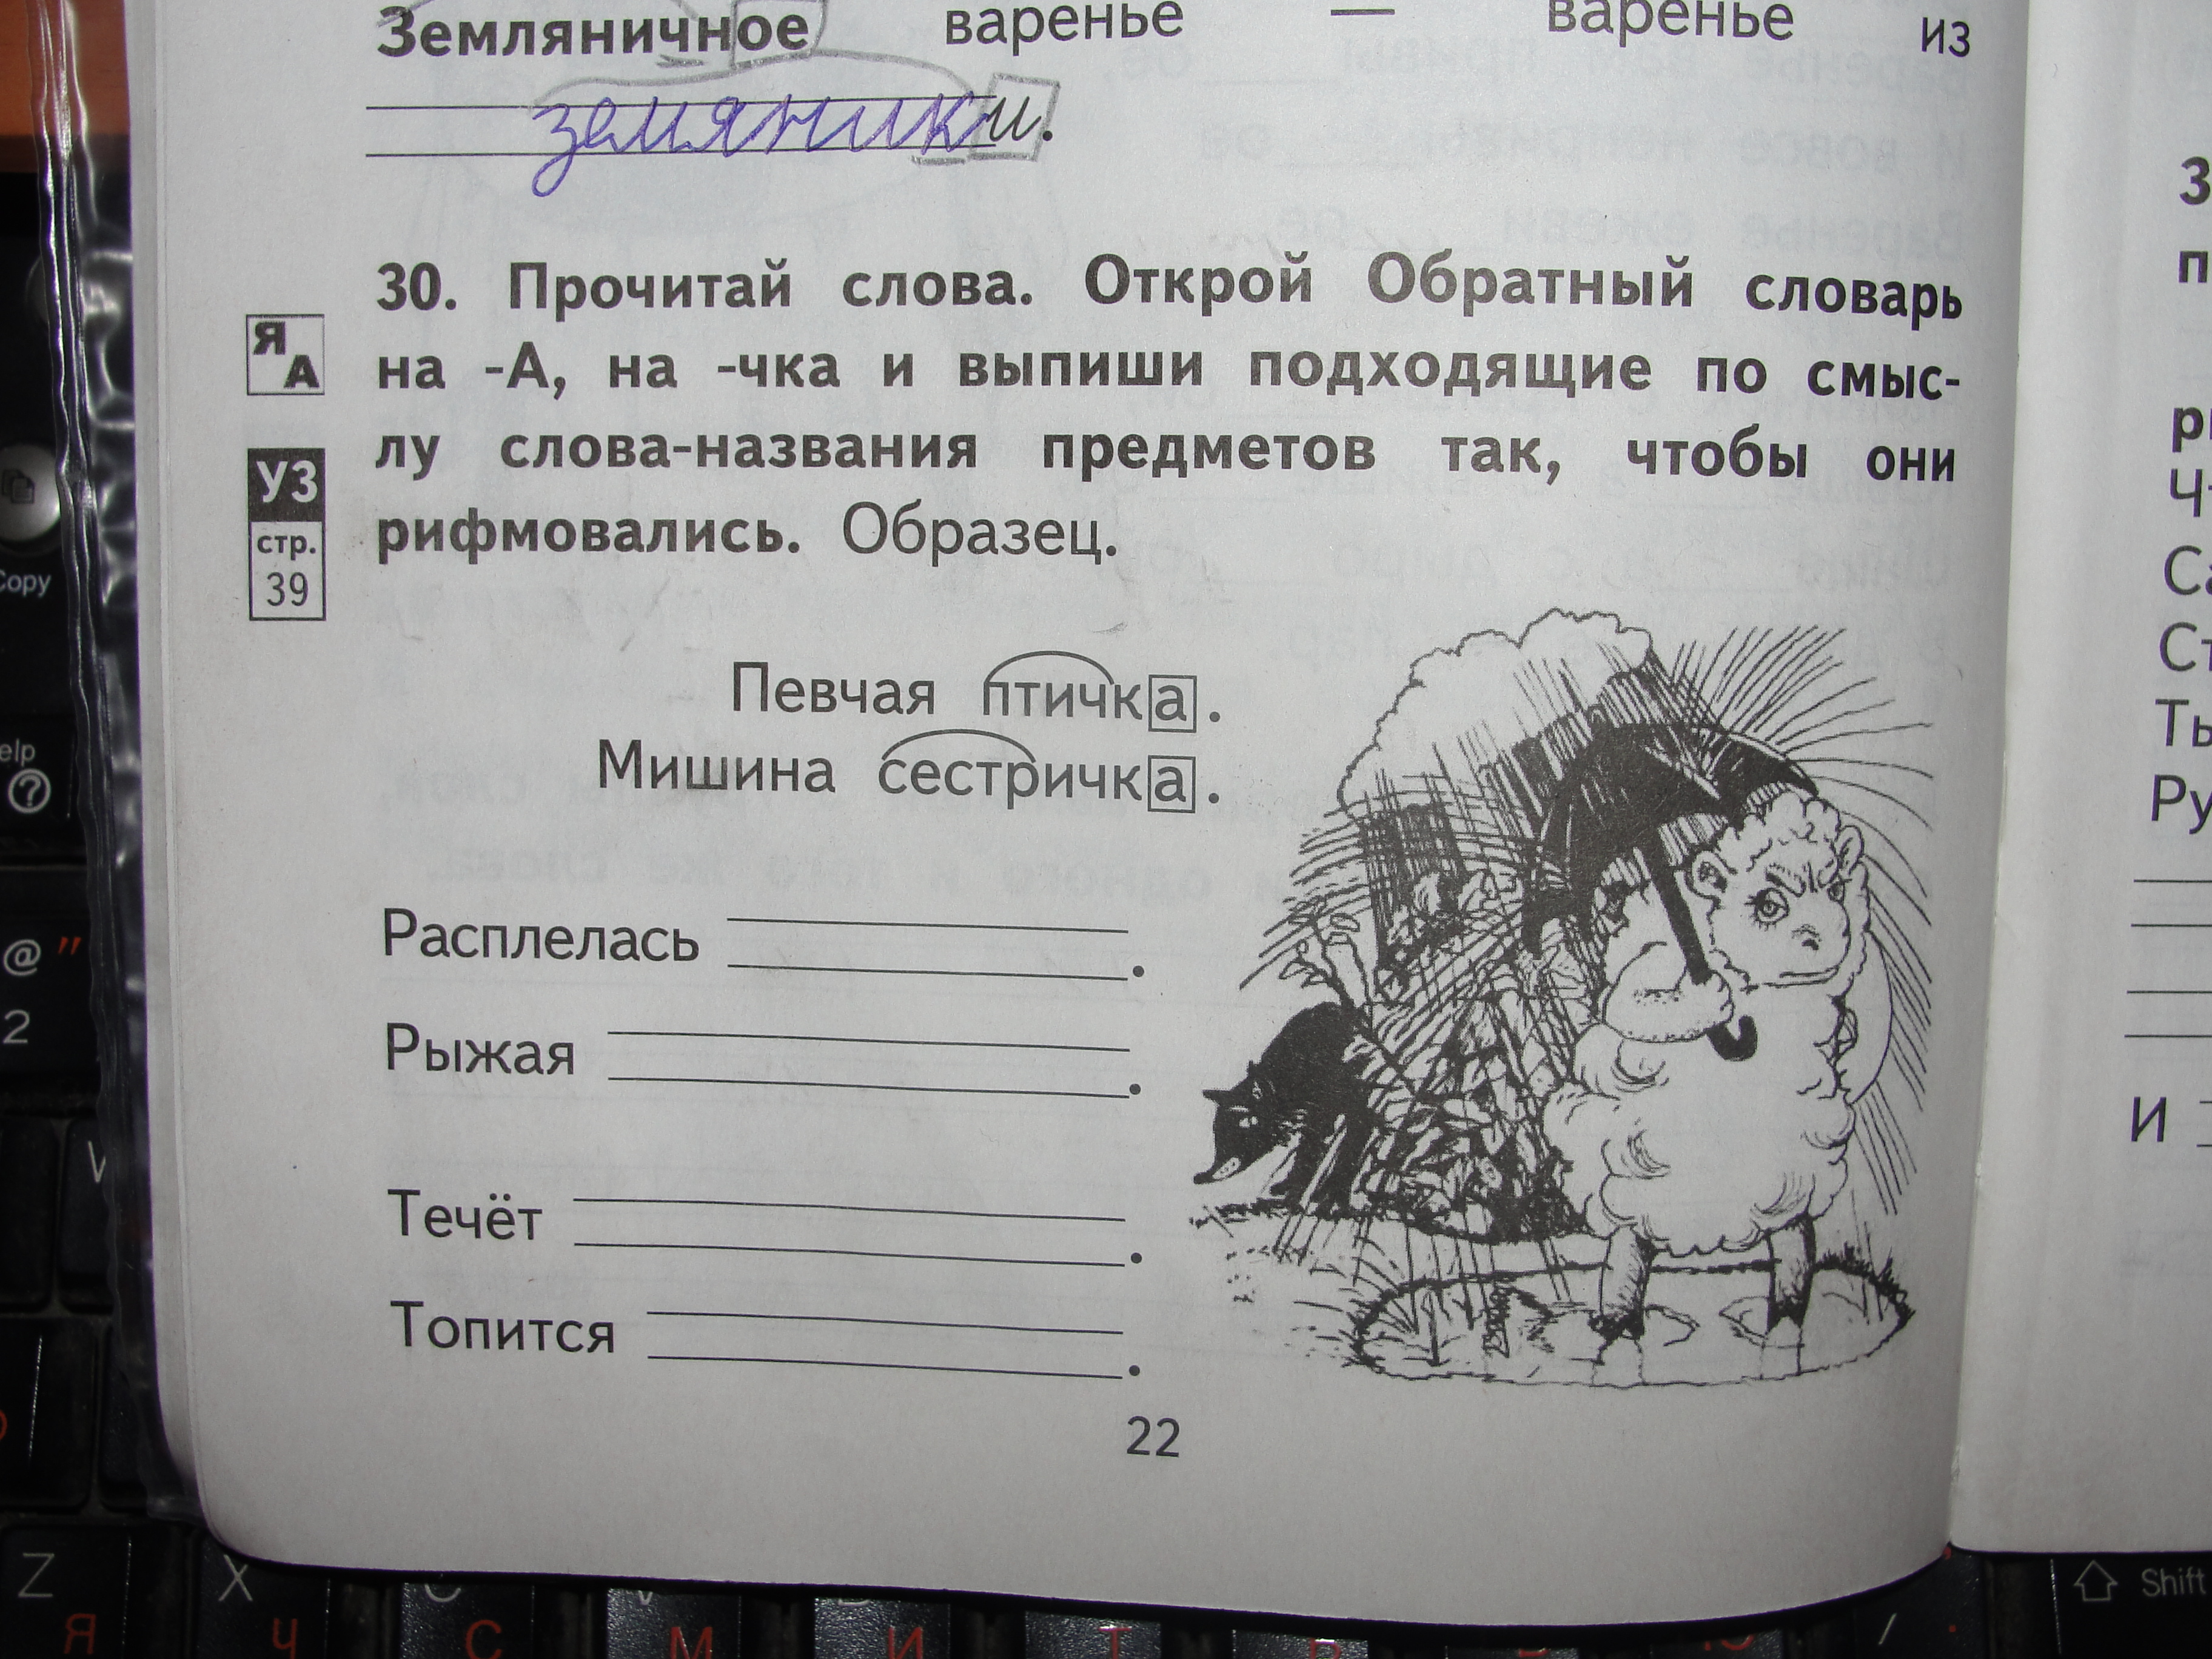 Земляничное варенье — варенье из
земяники.
30. Прочитай слова. Открой Обратный словарь
на -А, на -чка и выпиши подходящие по смыс-
лу слова-названия предметов так, чтобы они
рифмовались. Образец.
Я
А
УЗ
стр.
39
Певчая птичка.
Мишина сестричка.
Расплелась
Рыжая
Течёт
Топится
22
З
п
Ты
Ру
И
Copy
elp
?
@ "
2
Z
Я
X
Ч
C
С
М
И
Т
/
.
Shift